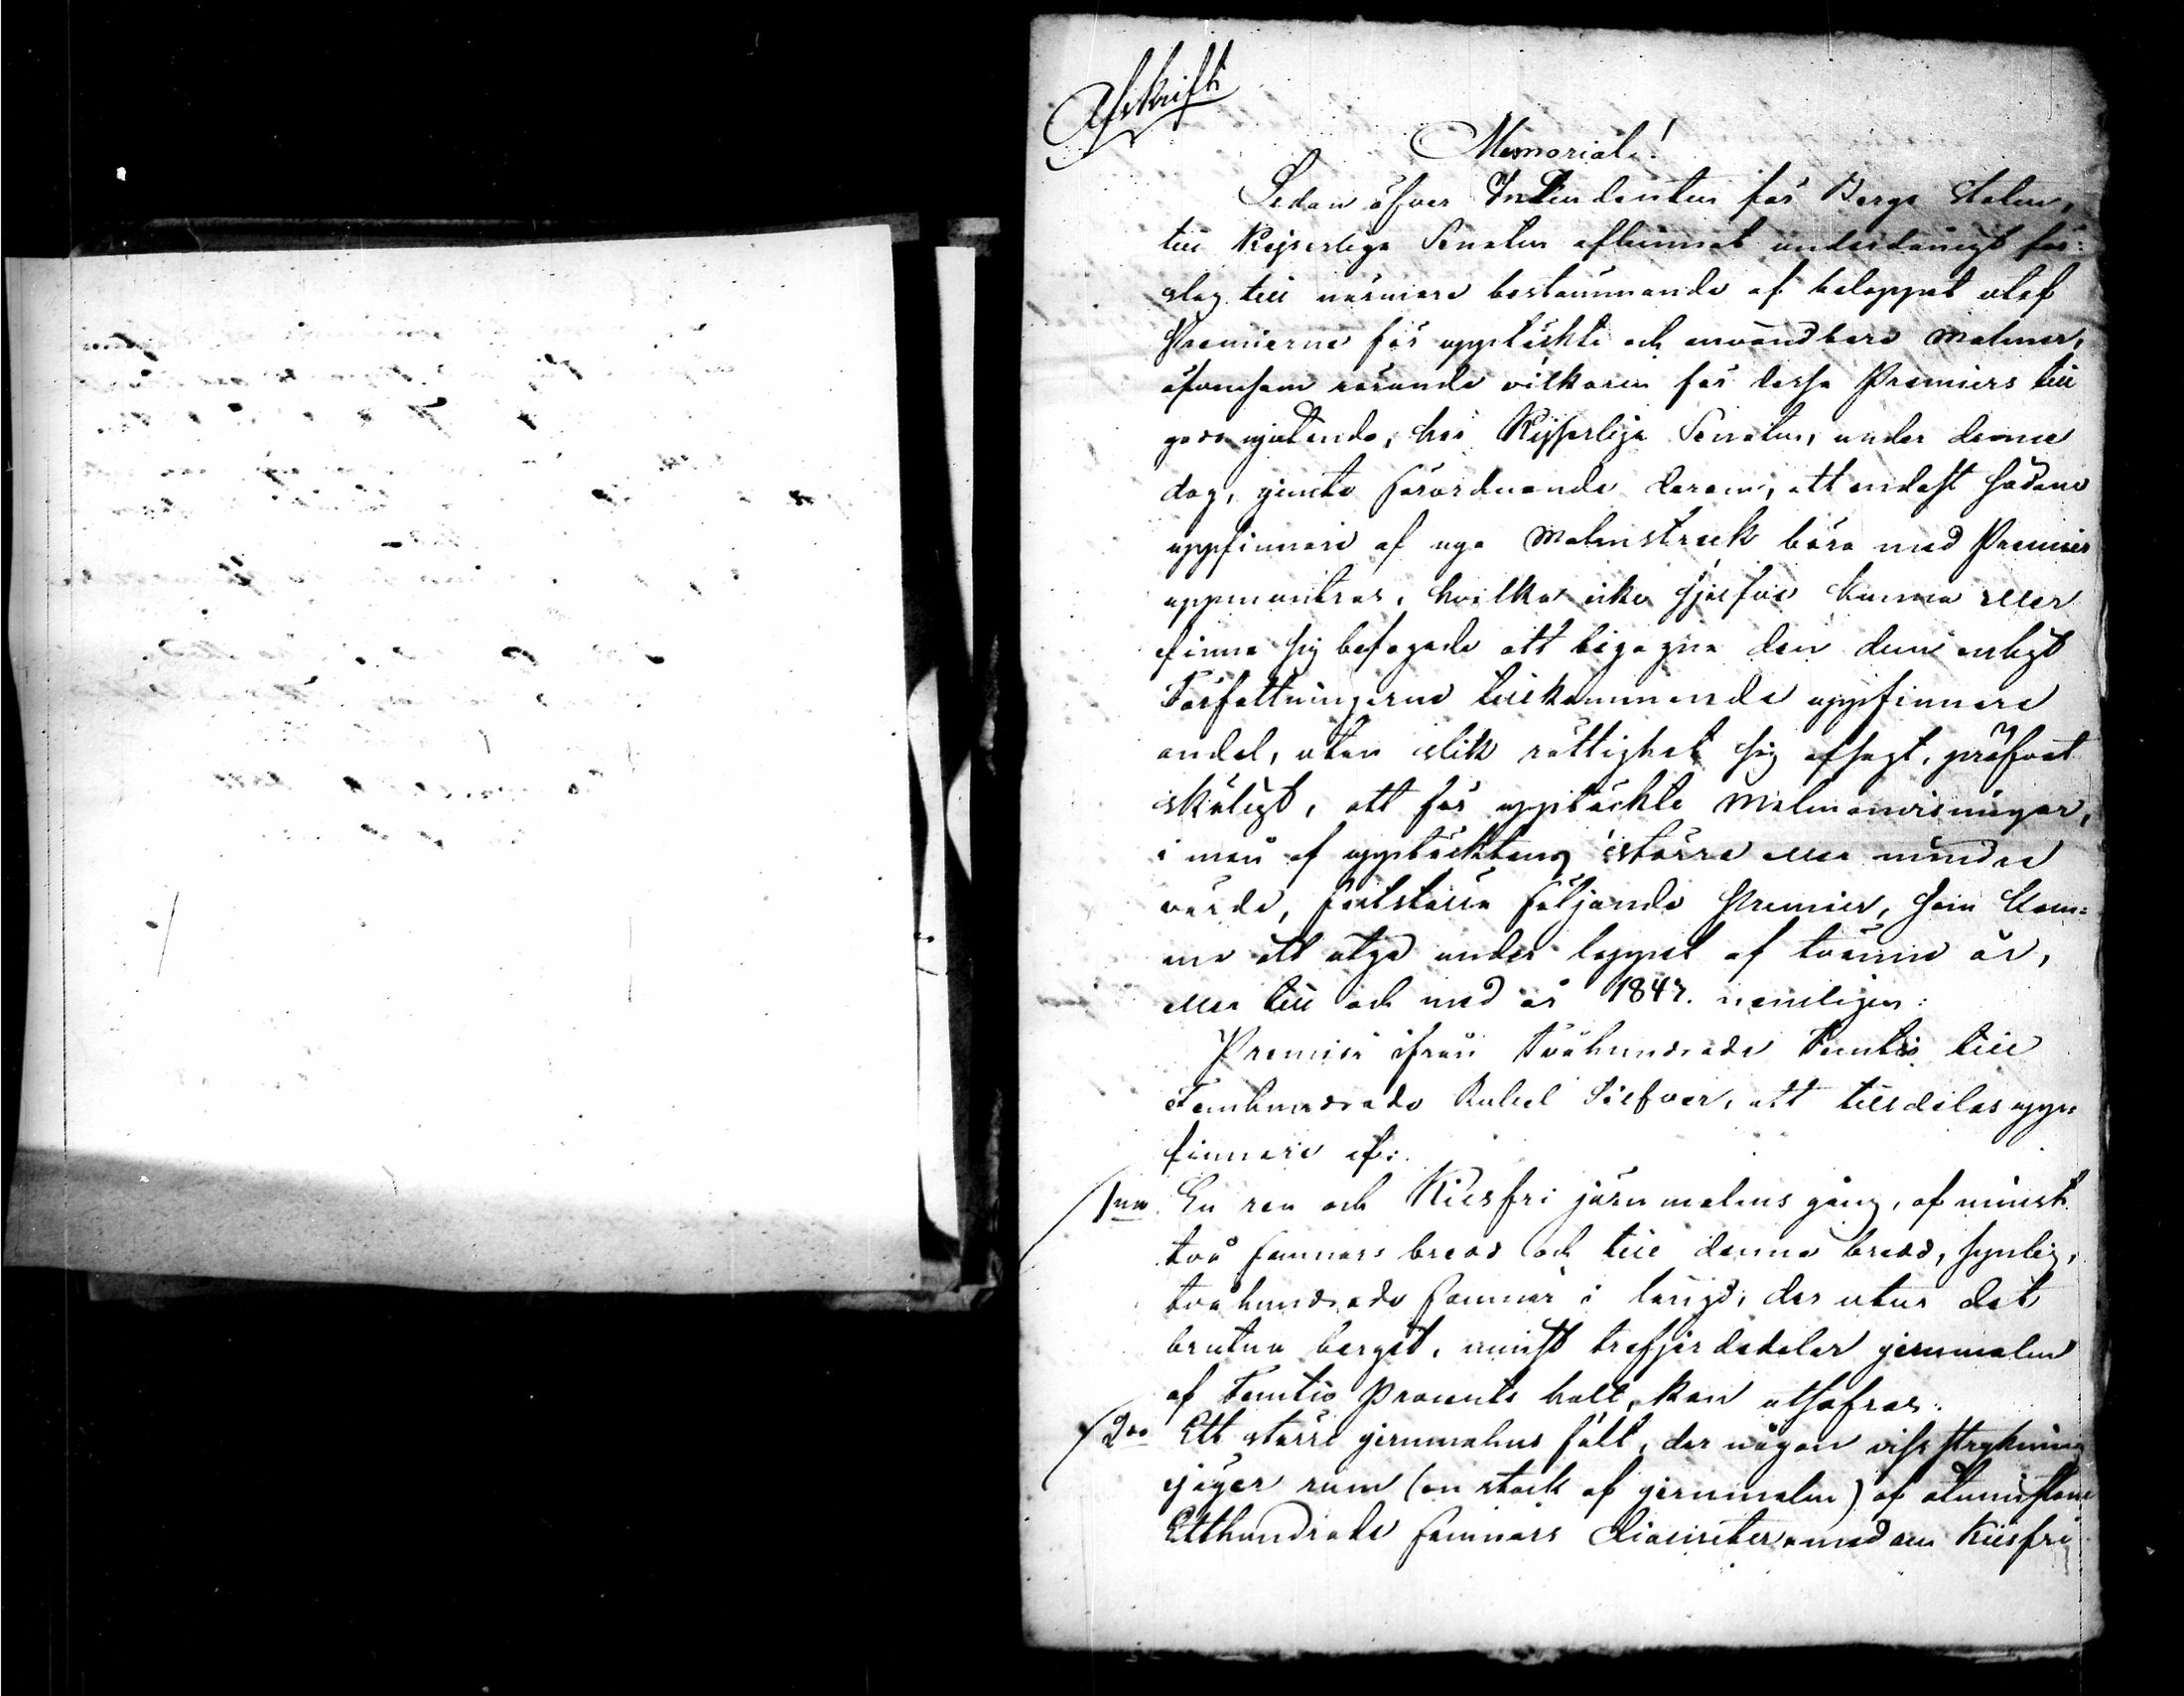 Afskrift
Memorial!
Sedan öfver Intendenten för Bergs Staten,
till Kejserliga Senaten aflemnat underdånigt för:
slag till närmare bestämmande af beloppet utaf
Premierne för upptäckte och användbare Malmer,
äfvensom rörande vilkoren för dessa Premiers till
godo njutande, har Kejserliga Senaten, under denna
dag, jemte förordnande derom, att endast sådane
uppfinnare af nya Malmstreck böra med Premier
uppmuntras, hvilka icke sjelfve kunna eller
finna sig befogade att begagna den dem enligt
Författningarne tillkommande uppfinnare
andel, utan slik rättighet sig afsagt, pröfvat
skäligt, att för upptäckte Malmanvisningar,
i mån af upptäcktens större eller mindre
värde, fastställa följande Premier, som kom:
ma att utgå under loppet af tvänne år,
eller till och med år 1847. nemligen:
Premier ifrån Tvåhundrade Femtio till
Femhundrade Rubel Silfver, att tilldelas upp:
finnare af:
1mo En ren och Kiesfri järnmalms gång, af minst
två famnars bredd och till denna bredd, synlig,
tvåhundrade famnar i längd, der utur det
brutna berget, minst trefjerdedelar jernmalm
af Femtio Procents halt, kan utsofras.
2do Ett större jernmalms fält, der någon viss strykning
ej äger rum (en stock af jernmalm) af åtminstone
Etthundrade famnars diameter, med en Kiesfri